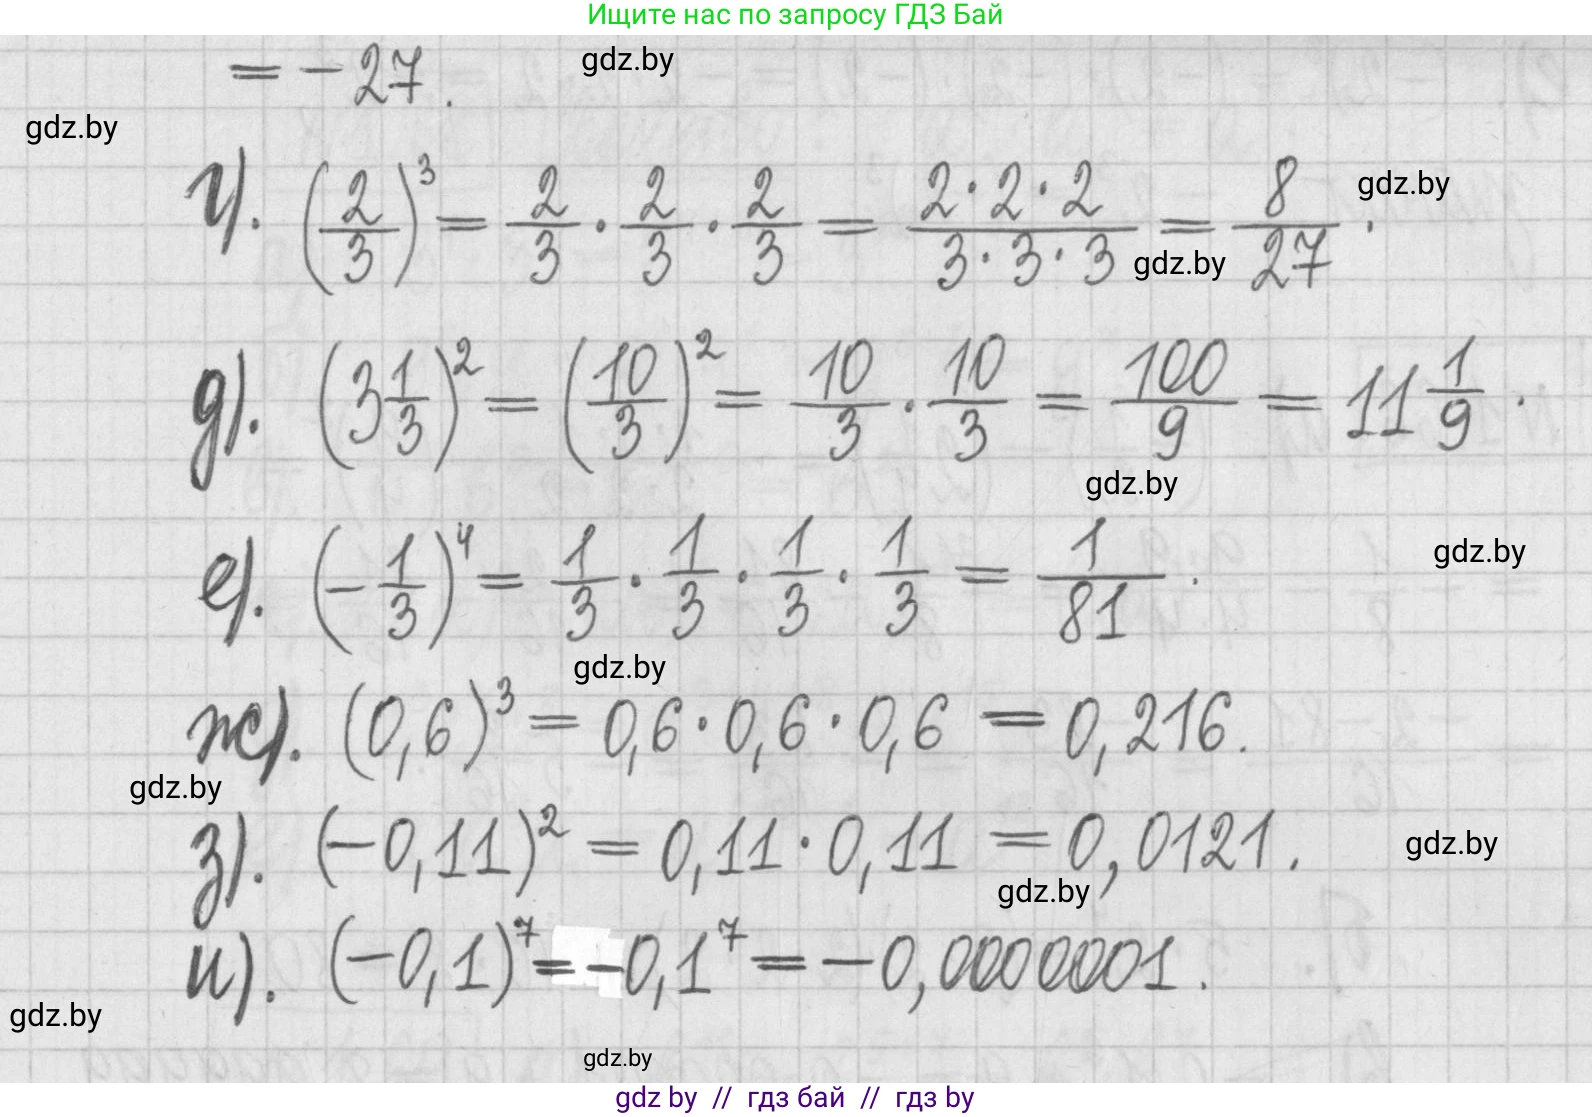 Ищите нас по запросу ГДЗ Бай
= - 27.
gdz.by
gdz.by
г). (2/3)³ = 2/3 · 2/3 · 2/3 = 2·2·2/3·3·3 = 8/27.
gdz.by
gdz.by
д). (3 1/3)² = (10/3)² = 10/3 · 10/3 = 100/9 = 11 1/9.
gdz.by
gdz.by
е). (-1/3)⁴ = 1/3 · 1/3 · 1/3 · 1/3 = 1/81.
gdz.by
ж). (0,6)³ = 0,6 · 0,6 · 0,6 = 0,216.
gdz.by
з). (-0,11)² = 0,11 · 0,11 = 0,0121.
gdz.by
gdz.by
и). (-0,1)⁷ = -0,1⁷ = -0,0000001.
gdz.by
gdz.by
gdz by // гдз бай // гдз by